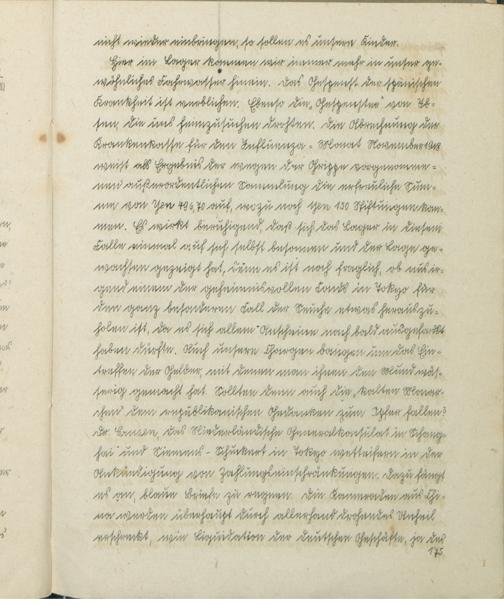 nicht wieder einbringen, so sollen es unsere Kinder.
Hier im Lager kommen wir immer mehr in unser ge-
wöhnliches Fahrwasser hinein. Das Gespenst der spanischen
Krankheit ist verblichen. Ebenso die „Gespenster" von Ib-
sen, die uns heimzusuchen drohten. Die Abrechnung der
Krankenkasse für den Influenza-Monat November
weist als Ergebnis der wegen der Grippe vorgenomme-
nen außerordentlichen Sammlung die erfreuliche Sum-
me von Yen 496,70 auf, wozu noch Yen 130 Stiftungen kom-
men. Es wirkt beruhigend, daß sich das Lager in diesem
Falle einmal auf sich selbst besonnen und der Lage ge-
wachsen gezeigt hat, denn es ist noch fraglich, ob aus ir-
gend einem der geheimnisvollen Fonds in Tokyo für
den ganz besonderen Fall der Seuche etwas herauszu-
holen ist, da es sich allem Anscheine nach bald
haben dürfte. Auch unsere bangen um das Ein-
treffen der Gelder, mit denen man ihnen den Mund wäs-
serig gemacht hat. Sollten denn auch die „kalten Monar-
chen" dem republikanischen Gedanken zum Opfer fallen?
das Niederländische Generalkonsulat in Schang-
hai und Siemens-Schuckert in Tokyo wetteifern in der
Ankündigung von Zahlungseinschränkungen. Dazu fängt
es an, blaue Briefe zu regnen. Die Kameraden aus Chi-
na werden überhaupt durch allerhand drohendes Unheil
erschreckt, wie Liquidation der deutschen Geschäfte, ja der
175